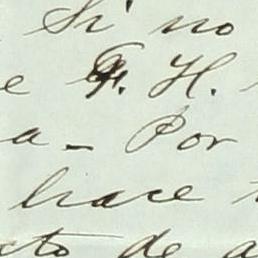 Si no
e F. H.
a – Por
hace
cto de a